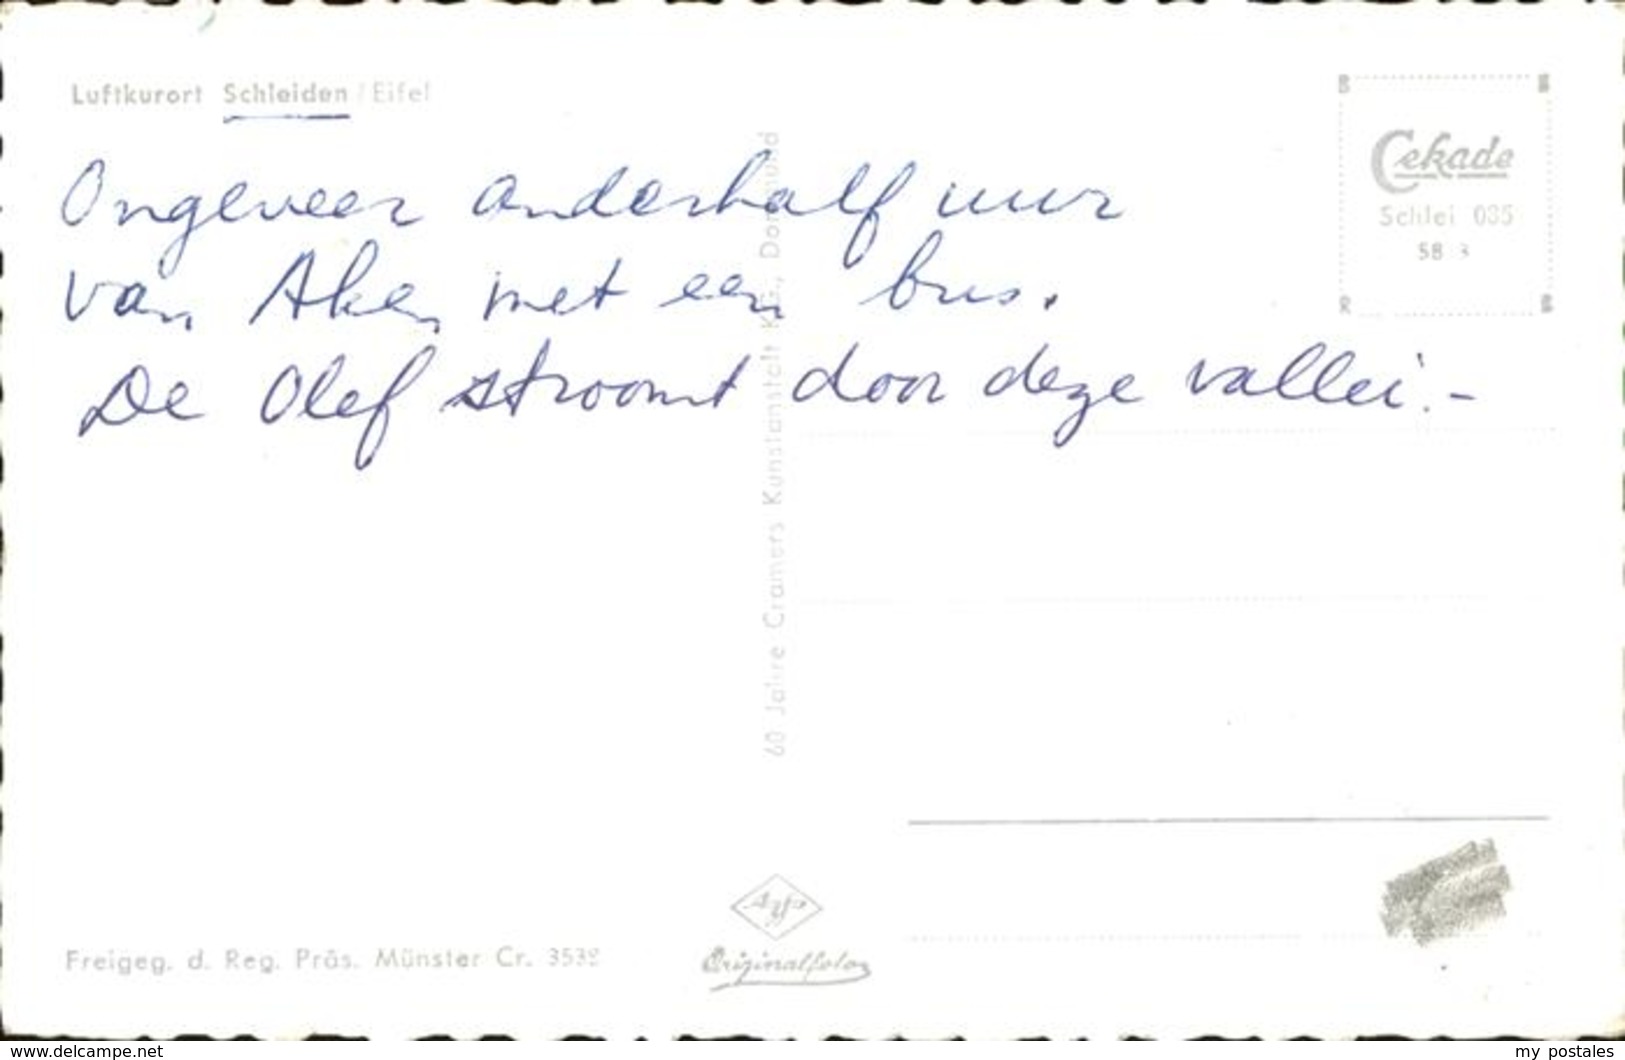 Luftkurort Schleiden / Eifel
Cekade
Schlei 035
58 3
Ongeveer anderhalf uur
van Aken met een bus.
De Olef stroomt door deze vallei.-
60 Jahre Cramers Kunstanstalt KG., Dortmund
Freigeg. d. Reg. Präs. Münster Cr.
Agfa
Originalfoto
www.delcampe.net
my postales